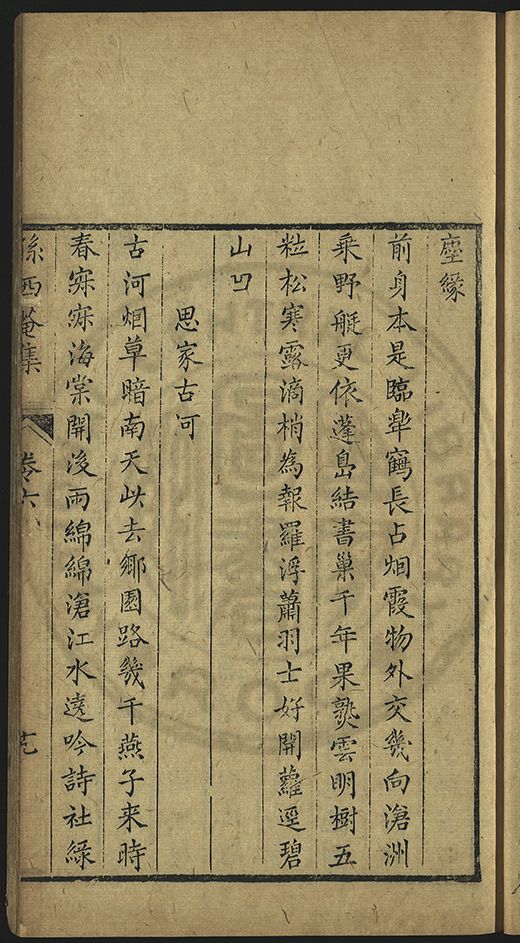 塵緣
前身本是臨皐鶴長占烟霞物外交幾向滄洲
乘野艇更依蓬島結書巢千年果熟雲明樹五
粒松寒露滴梢為報羅浮蕭羽士好開蘿逕碧
山凹
思家古河
古河烟草暗南天此去鄉園路幾千燕子来時
春寂寂海棠開後雨綿綿滄江水遠吟詩社綠
孫西菴集 卷六